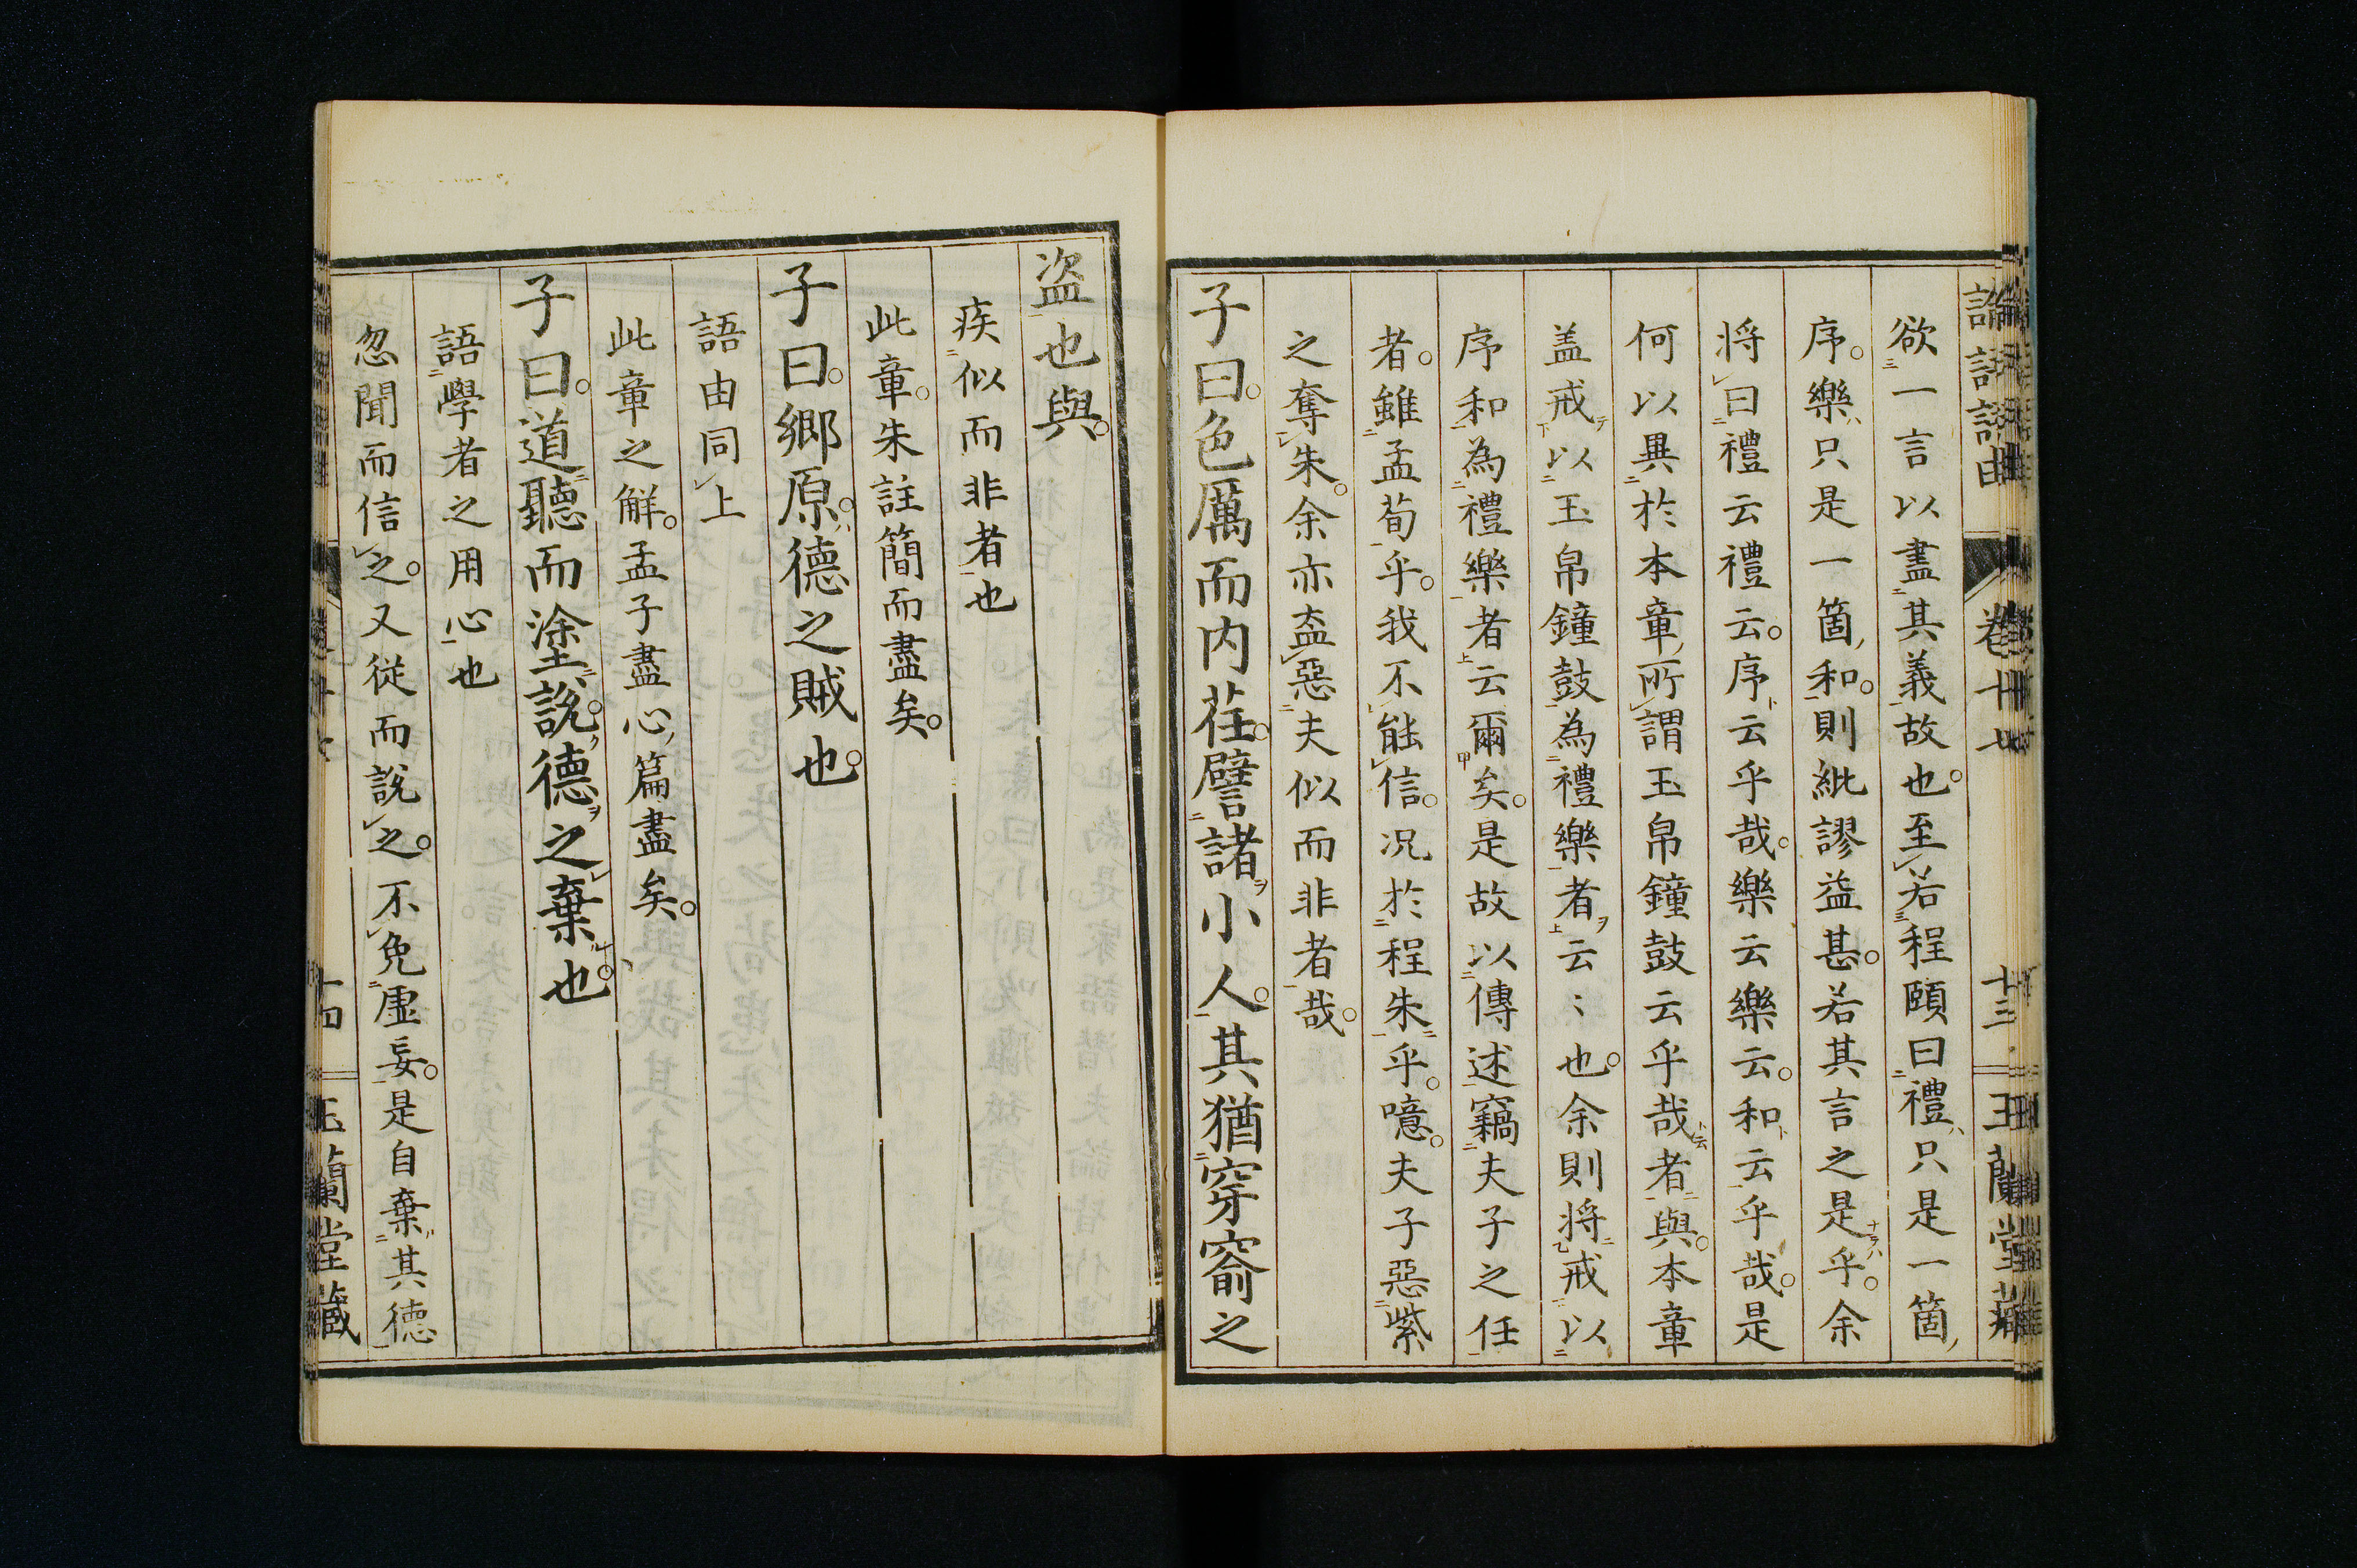 論語語由 卷十七 十三 玉蘭堂藏
欲一言以盡其義故也至若程頤曰禮只是一箇
序樂只是一箇和則紕謬益甚若其言之是乎余
将曰禮云禮云序云乎哉樂云樂云和云乎哉是
何以異於本章所謂玉帛鐘鼓云乎哉者與本章
盖戒以玉帛鐘鼓為禮樂者云〻也余則将戒以
序和為禮樂者云爾矣是故以傳述竊夫子之任
者雖孟荀乎我不能信況於程朱乎噫夫子惡紫
之奪朱余亦盍惡夫似而非者哉
子曰色厲而内荏譬諸小人其猶穿窬之
盗也與
疾似而非者也
此章朱註簡而盡矣
子曰鄉原德之賊也
語由同上
此章之解孟子盡心篇盡矣
子曰道聽而塗説德之棄也
語學者之用心也
忽聞而信之又從而説之不免虚妄是自棄其德
十四 玉蘭堂藏